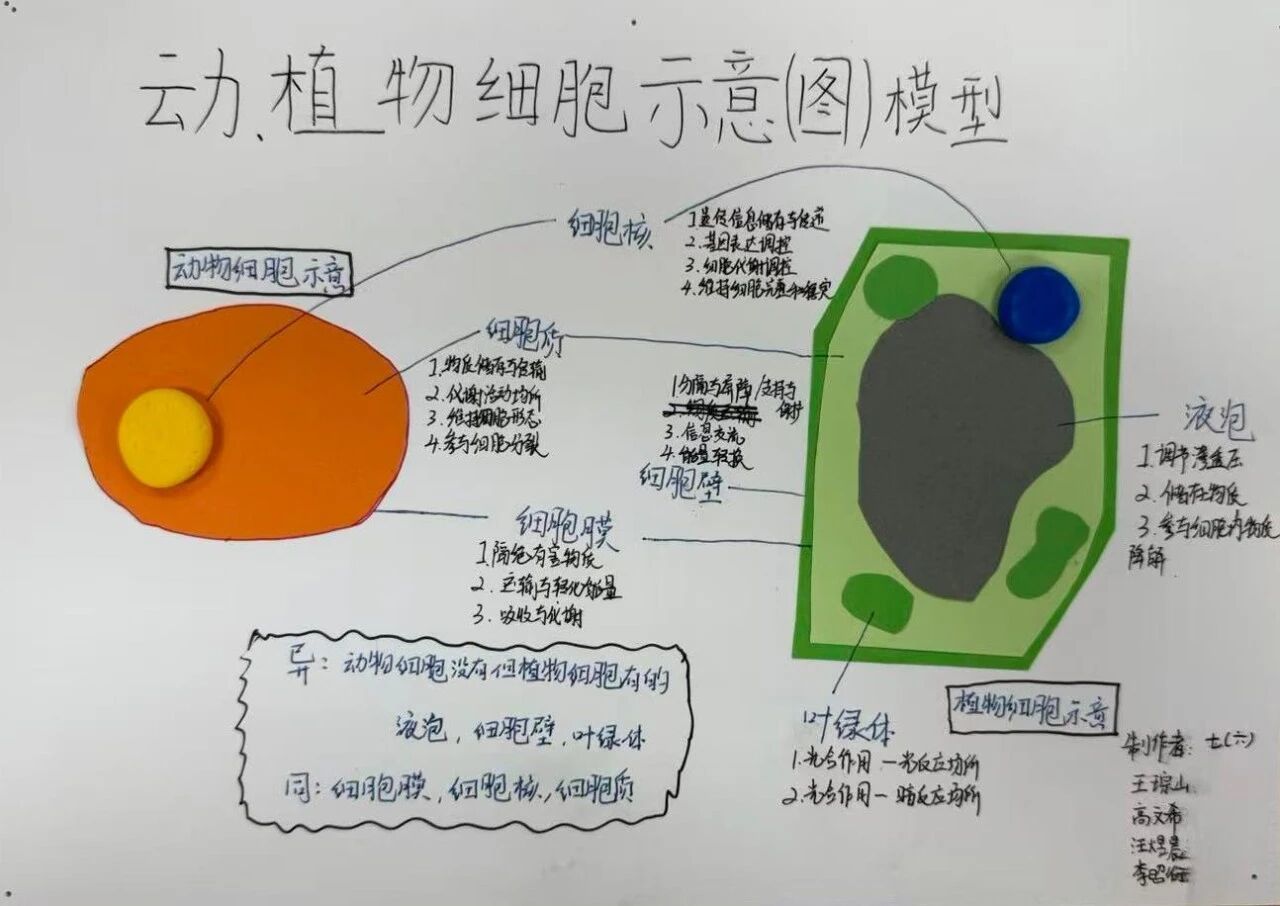 动、植物细胞示意(图)模型
细胞核
1.遗传信息储存与传递
2.基因表达调控
3.细胞代谢调控
4.维持细胞完整和稳定
动物细胞示意
细胞质
1.物质储存与运输
2.代谢活动场所
3.维持细胞形态
4.参与细胞分裂
1分隔与屏障/支持与
保护
3.信息交流
4.能量转换
细胞壁
液泡
1.调节渗透压
2.储存物质
3.参与细胞内物质
降解
细胞膜
1.隔绝有害物质
2.运输与转化能量
3.吸收与代谢
异:动物细胞没有但植物细胞有的
液泡,细胞壁,叶绿体
同:细胞膜,细胞核,细胞质
叶绿体
1.光合作用一光反应场所
2.光合作用一暗反应场所
植物细胞示意
制作者:七(六)
王琮山
高文希
汪煜晨
李昭